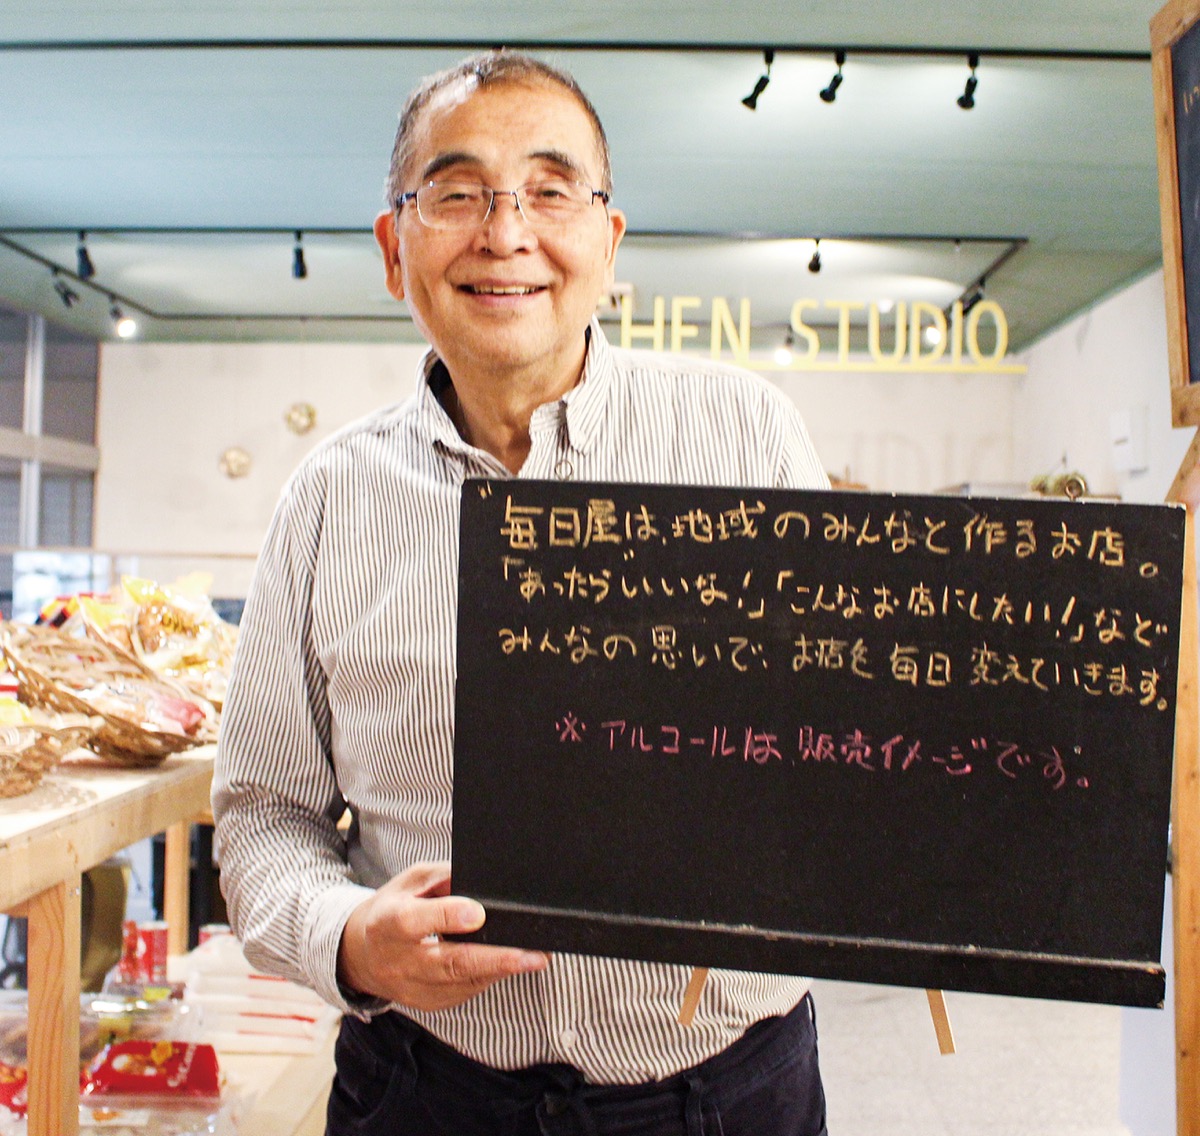 HEN STUDIO
毎日屋は、地域のみんなと作るお店。
「あったらいいな!」「こんなお店にしたい!」など
みんなの思いで、お店を毎日変えていきます。
※アルコールは、販売イメージです。